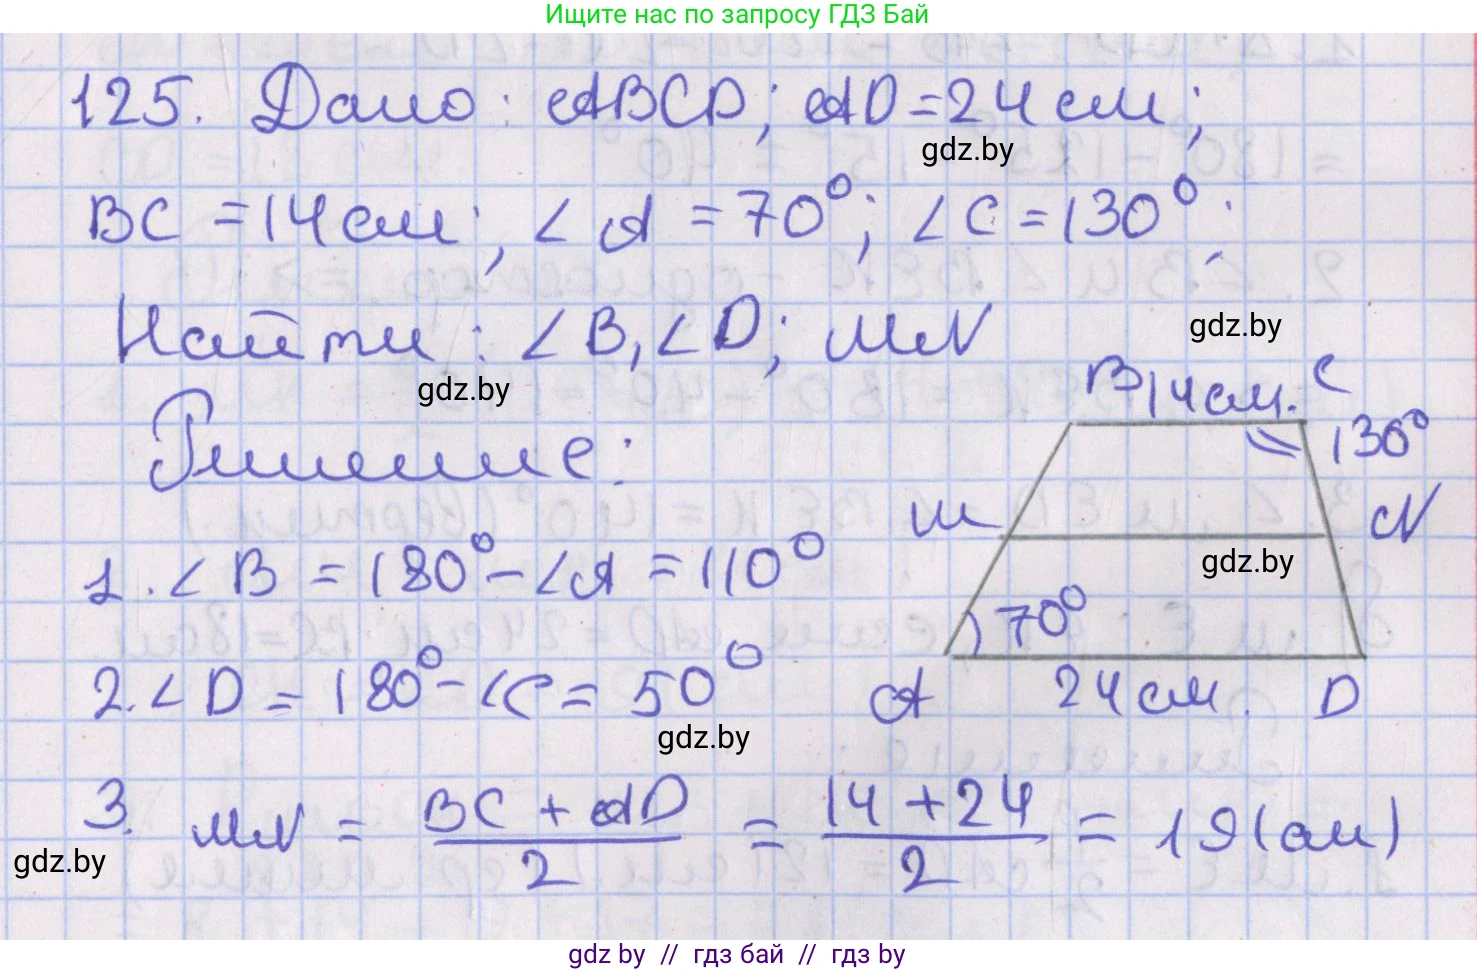 Ищите нас по запросу ГДЗ Бай
125. Дано: ABCD; AD = 24 см;
gdz.by
BC = 14 см; ∠A = 70°; ∠C = 130°;
Найти: ∠B, ∠D; MN
gdz.by
gdz.by
Решение:
B 14 см. C
130°
M N
gdz.by
1. ∠B = 180° - ∠A = 110°
70°
2. ∠D = 180° - ∠C = 50°
A 24 см. D
gdz.by
3. MN = BC + AD / 2 = 14 + 24 / 2 = 19 (см)
gdz.by
gdz by // гдз бай // гдз by